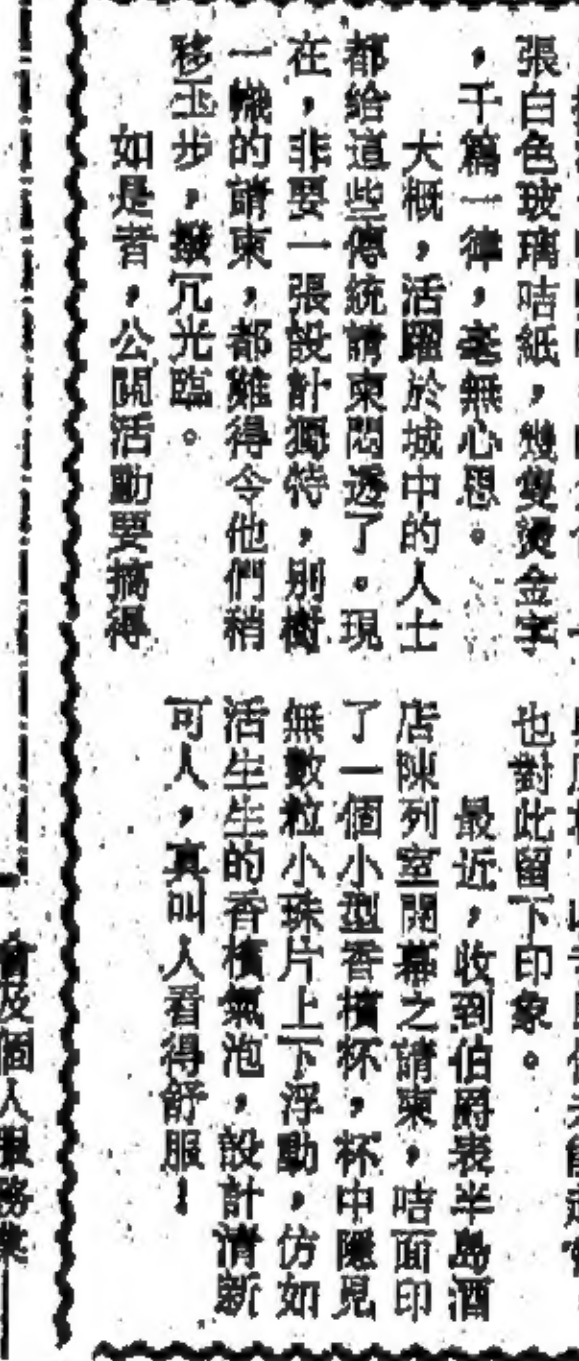 張白色玻璃咭紙，幾隻燙金字
，千篇一律，毫無心思。
大概，活躍於城中的人士
都給這些傳統請柬悶透了。現
在，非要一張設計獨特，別樹
一幟的請柬，都難得令他們稍
移玉步，撥冗光臨。
如是者，公關活動要搞得
也對此留下印象。
最近，收到伯爵表半島酒
店陳列室開幕之請柬，咭面印
了一個小型香檳杯，杯中隱見
無數粒小珠片上下浮動，仿如
活生生的香檳氣泡，設計清新
可人，真叫人看得舒服！
會及個人服務業